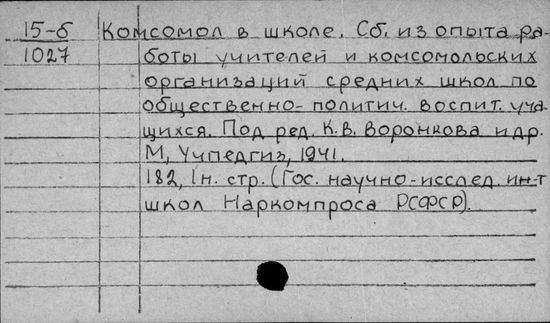 15-б Комсомол в школе. Сб. из опыта ра-
1027 боты учителей и комсомольских
организаций средних школ по
общественно-политич. воспит. уча-
щихся. Под ред. К.В. Воронкова и др.
М, Учпедгиз, 1941.
182, 1н. стр. (Гос. научно-исслед. ин-т
школ Наркомпроса РСФСР).